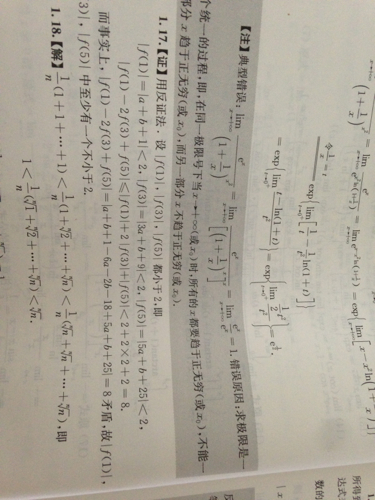 lim_{x→+∞} e^x/(1+1/x)^{x^2} = lim_{x→+∞} e^x/e^{x^2 ln(1+1/x)} = lim e^{x-x^2 ln(1+1/x)} = exp{lim_{x→+∞}[x-x^2 ln(1+1/x)]}
令1/x=t, exp{lim_{t→0^+}[1/t - 1/t^2 ln(1+t)]}
= exp{lim_{t→0^+} (t-ln(1+t))/t^2} = exp{lim_{t→0^+} (1/2 t^2)/t^2} = e^{1/2}.
【注】典型错误: lim_{x→+∞} e^x/(1+1/x)^{x^2} = lim_{x→+∞} e^x/[(1+1/x)^x]^x = lim_{x→+∞} e^x/e^x = 1. 错误原因:求极限是一
个统一的过程,即,在同一极限号下当x→+∞(或x₀)时,所有的x都要趋于正无穷(或x₀),不能一
部分x趋于正无穷(或x₀),而另一部分x不趋于正无穷(或x₀).
1.17.【证】用反证法. 设|f(1)|,|f(3)|,|f(5)|都小于2,即
|f(1)|=|a+b+1|<2,|f(3)|=|3a+b+9|<2,|f(5)|=|5a+b+25|<2,
|f(1)-2f(3)+f(5)|≤|f(1)|+2|f(3)|+|f(5)|<2+2×2+2=8.
而事实上,|f(1)-2f(3)+f(5)|=|a+b+1-6a-2b-18+5a+b+25|=8矛盾,故|f(1)|,
3)|,|f(5)|中至少有一个不小于2.
1.18.【解】 1/n(1+1+…+1)<1/n(1+√2+…+ⁿ√n)<1/n(ⁿ√n+ⁿ√n+…+ⁿ√n),即
1<1/n(√1+√2+…+ⁿ√n)<ⁿ√n,
所得
达式
数的
|x